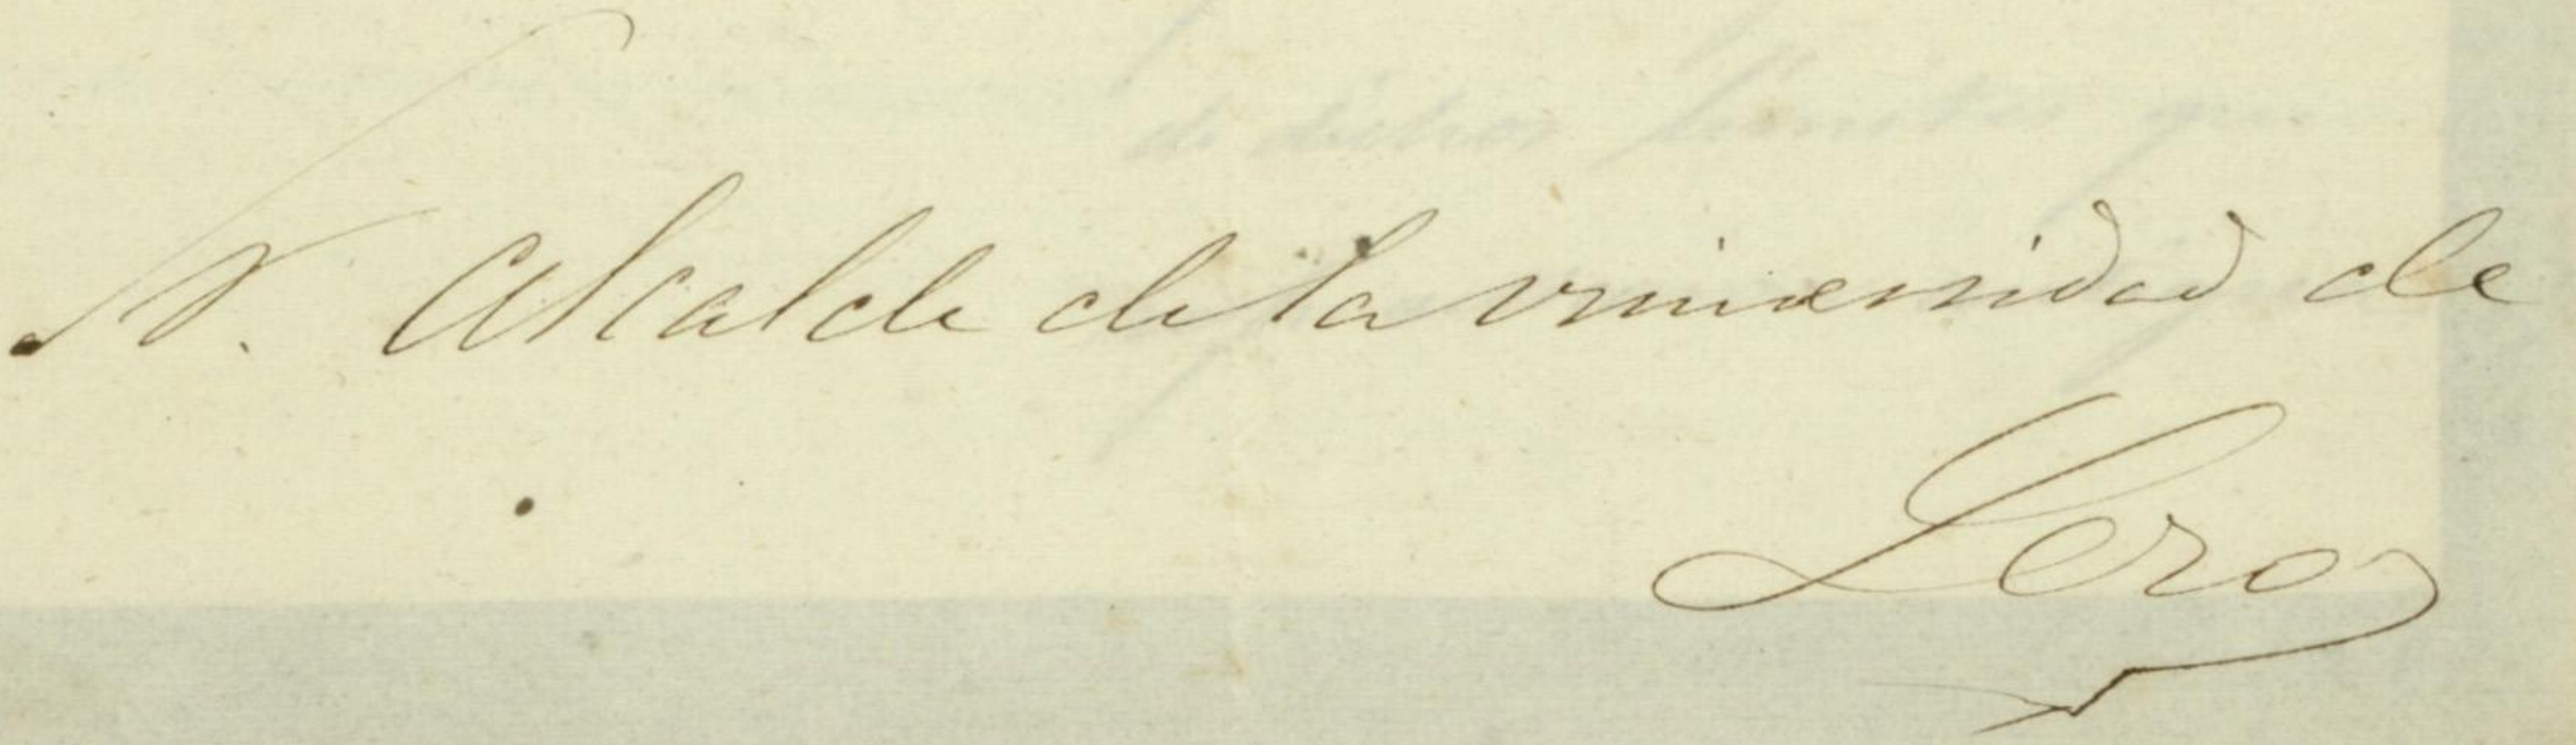 Sr. Alcalde de la universidad de
Lero